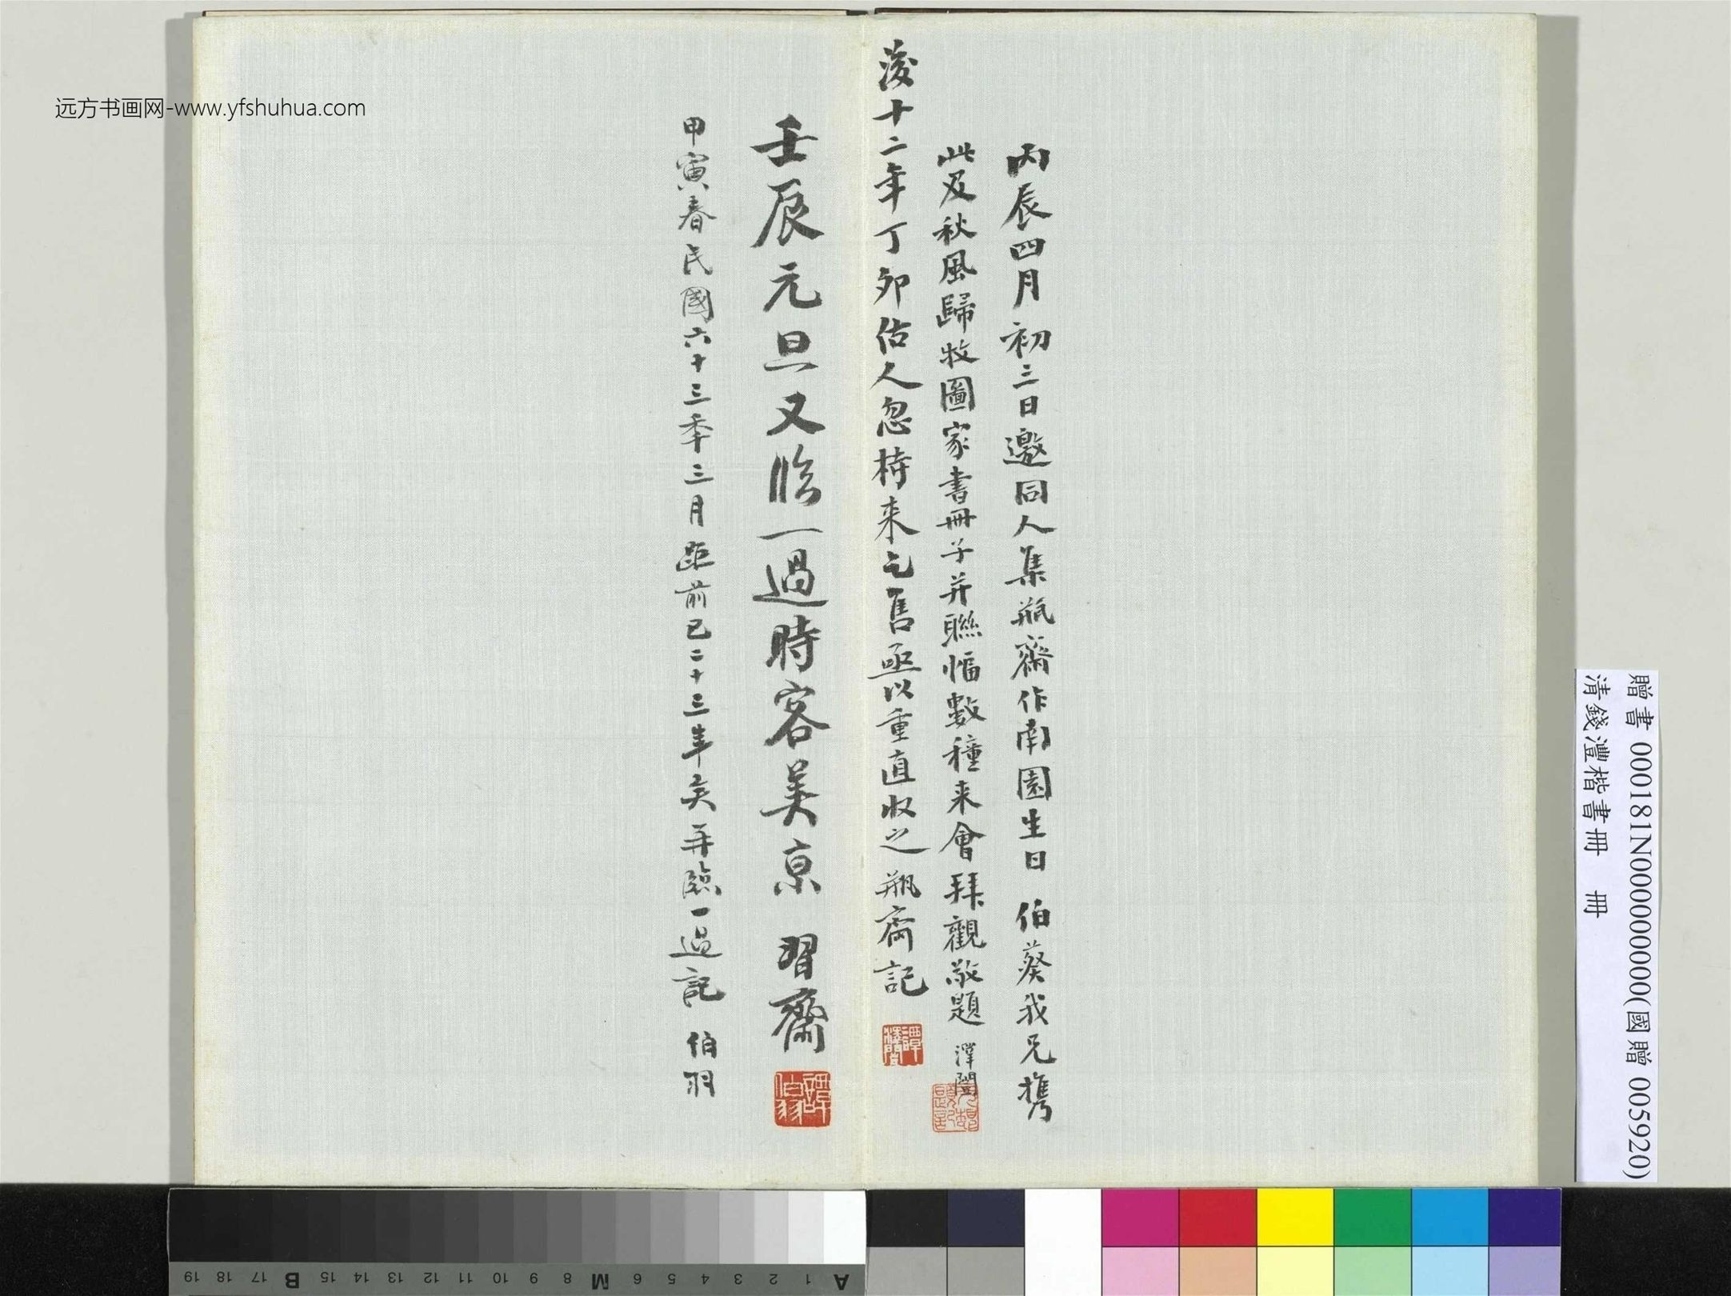 远方书画网-www.yfshuhua.com
丙辰四月初三日邀同人集瓶齋作南園生日 伯葵我兄攜
此及秋風歸牧圖家書冊子并聯幅數種来會拜觀敬題 澤闓
後十二年丁卯估人忽持来乞售亟以重直收之 瓶齋記
譚澤闓
壬辰元旦又臨一過時客美京 習齋
譚伯羽
甲寅春民國六十三季三月距前已二十三年矣再臨一過記 伯羽
贈書 000181N000000000(國贈 005920)
清錢灃楷書冊 冊
A 1 2 3 4 5 6 M 8 9 10 11 12 13 14 15 B 17 18 19